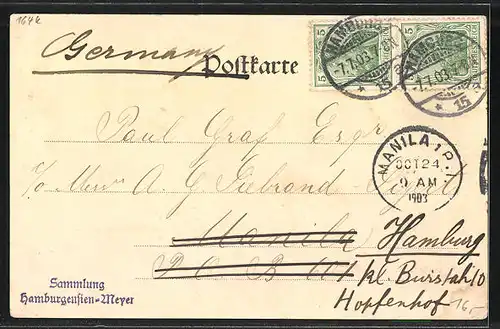 164k
Germany
Postkarte
5 5
HAMBURG
-7.7.03.7
* 15
HAMBURG
-7.7.03.
* 15
Paul Graf Esqr
c/o
A. G.
MANILA, P. I.
OCT 24
9 AM
1903
Manila Hamburg
P O B kl. Burstah 10
Hopfenhof
Sammlung
Hamburgensien-Meyer
16,-